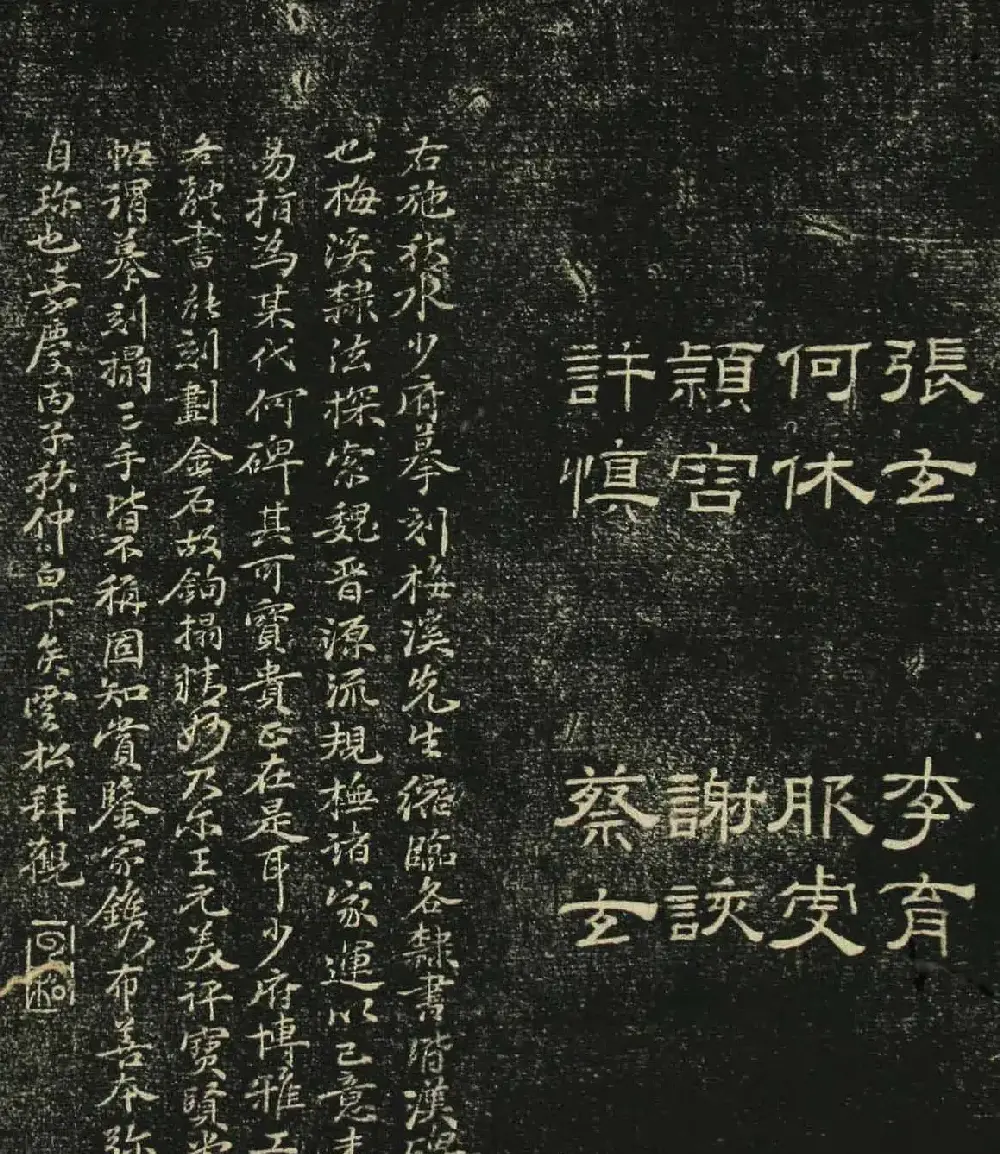 張玄 李育
何休 服虔
潁容 謝該
許慎 蔡玄
右施秋水少府摹刻梅溪先生縮臨各隸書皆漢碑
也梅溪隸法探索魏晉源流規橅諸家運以己意未
易指為某代何碑其可寶貴正在是耳少府博雅工
各體書能刻劃金石故鉤搨精妙乃尔王元美評寶賢堂
帖謂摹刻搨三手皆不稱固知賞鑒家鐫布善本弥
自珎也嘉慶丙子秋仲白下矦雲松拜觀